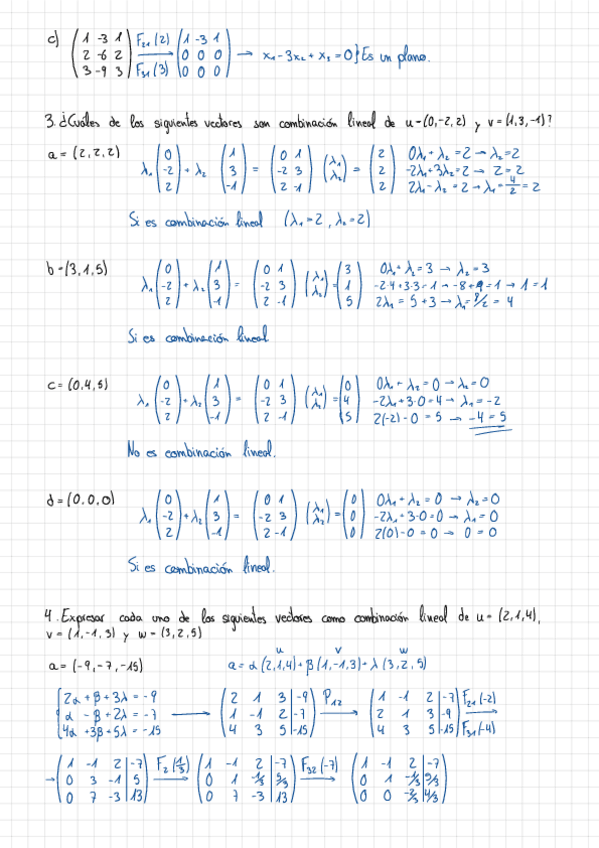 c) (1 -3 1 / 2 -6 2 / 3 -9 3) F₂₁(2) F₃₁(3) (1 -3 1 / 0 0 0 / 0 0 0) → x₁ - 3x₂ + x₃ = 0} Es un plano.
3. ¿Cuáles de los siguientes vectores son combinación lineal de u=(0,-2,2) y v=(1,3,-1)?
a = (2,2,2) λ₁ (0 / -2 / 2) + λ₂ (1 / 3 / -1) = (0 1 / -2 3 / 2 -1) (λ₁ / λ₂) = (2 / 2 / 2)
0λ₁ + λ₂ = 2 → λ₂ = 2
-2λ₁ + 3λ₂ = 2 → 2 = 2
2λ₁ - λ₂ = 2 → λ₁ = 4/2 = 2
Si es combinación lineal (λ₁=2, λ₂=2)
b = (3,1,5) λ₁ (0 / -2 / 2) + λ₂ (1 / 3 / -1) = (0 1 / -2 3 / 2 -1) (λ₁ / λ₂) = (3 / 1 / 5)
0λ₁ + λ₂ = 3 → λ₂ = 3
-2·4 + 3·3 = 1 → -8 + 9 = 1 → 1 = 1
2λ₁ = 5 + 3 → λ₁ = 8/2 = 4
Si es combinación lineal
c = (0,4,5) λ₁ (0 / -2 / 2) + λ₂ (1 / 3 / -1) = (0 1 / -2 3 / 2 -1) (λ₁ / λ₂) = (0 / 4 / 5)
0λ₁ + λ₂ = 0 → λ₂ = 0
-2λ₁ + 3·0 = 4 → λ₁ = -2
2(-2) - 0 = 5 → -4 = 5
No es combinación lineal.
d = (0,0,0) λ₁ (0 / -2 / 2) + λ₂ (1 / 3 / -1) = (0 1 / -2 3 / 2 -1) (λ₁ / λ₂) = (0 / 0 / 0)
0λ₁ + λ₂ = 0 → λ₂ = 0
-2λ₁ + 3·0 = 0 → λ₁ = 0
2(0) - 0 = 0 → 0 = 0
Si es combinación lineal.
4. Expresar cada uno de los siguientes vectores como combinación lineal de u = (2,1,4),
v = (1,-1,3) y w = (3,2,5)
u v w
a = (-9,-7,-15) a = α(2,1,4) + β(1,-1,3) + λ(3,2,5)
{2α + β + 3λ = -9 / α - β + 2λ = -7 / 4α + 3β + 5λ = -15 → (2 1 3 | -9 / 1 -1 2 | -7 / 4 3 5 | -15) P₁₂ → (1 -1 2 | -7 / 2 1 3 | -9 / 4 3 5 | -15) F₂₁(-2) F₃₁(-4) →
→ (1 -1 2 | -7 / 0 3 -1 | 5 / 0 7 -3 | 13) F₂(1/3) → (1 -1 2 | -7 / 0 1 -1/3 | 5/3 / 0 7 -3 | 13) F₃₂(-7) → (1 -1 2 | -7 / 0 1 -1/3 | 5/3 / 0 0 -2/3 | 4/3)